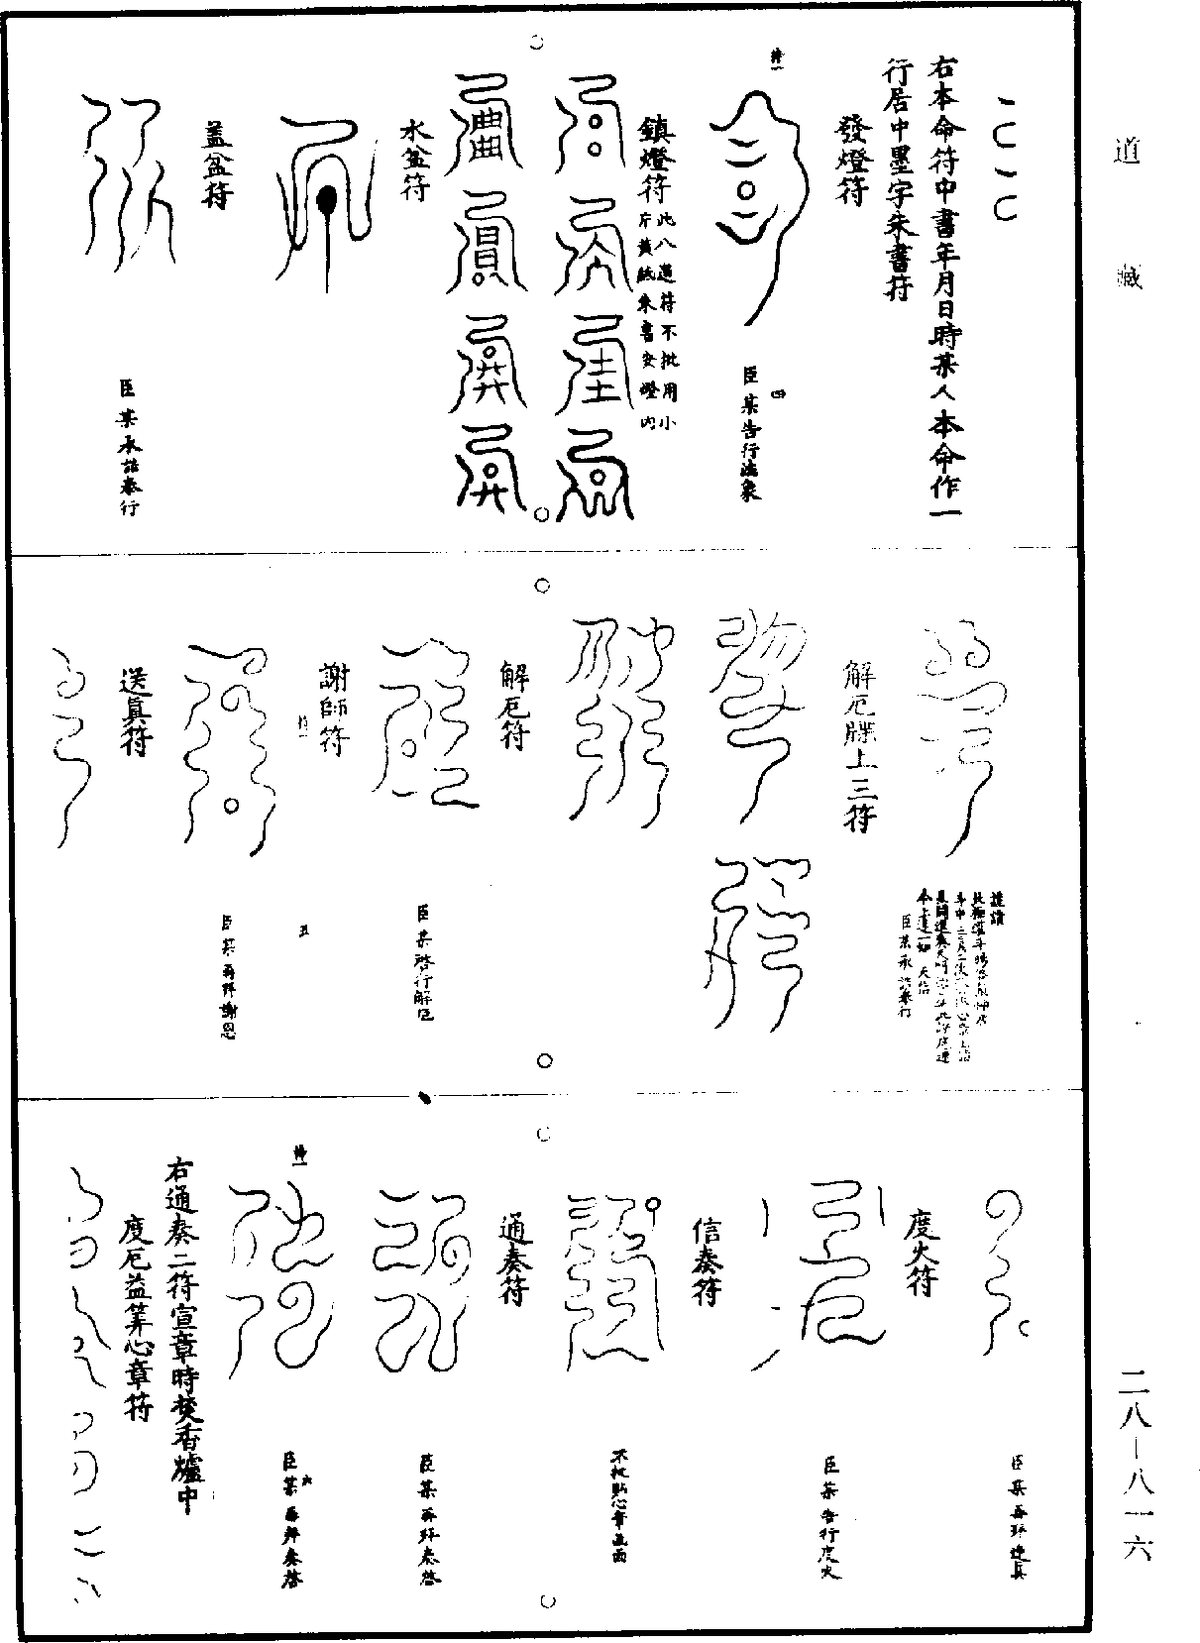 道藏
右本命符中書年月日時某人本命作一
行居中墨字朱書符
發燈符
符一
臣某告行滿衆
四
鎮燈符
此八道符不批用小
片黃紙朱書安燈內
水盆符
蓋盆符
臣某承誥奉行
謹請
臣某承誥奉行
解厄牒上三符
解厄符
臣某啓行解厄
謝師符
符一
臣某再拜謝恩
五
送真符
臣某再拜送真
度火符
臣某告行度火
信奏符
不批貼心章函面
通奏符
臣某再拜奏啓
臣某再拜奏啓
六
右通奏二符宣章時焚香爐中
度厄益筭心章符
二八—八一六